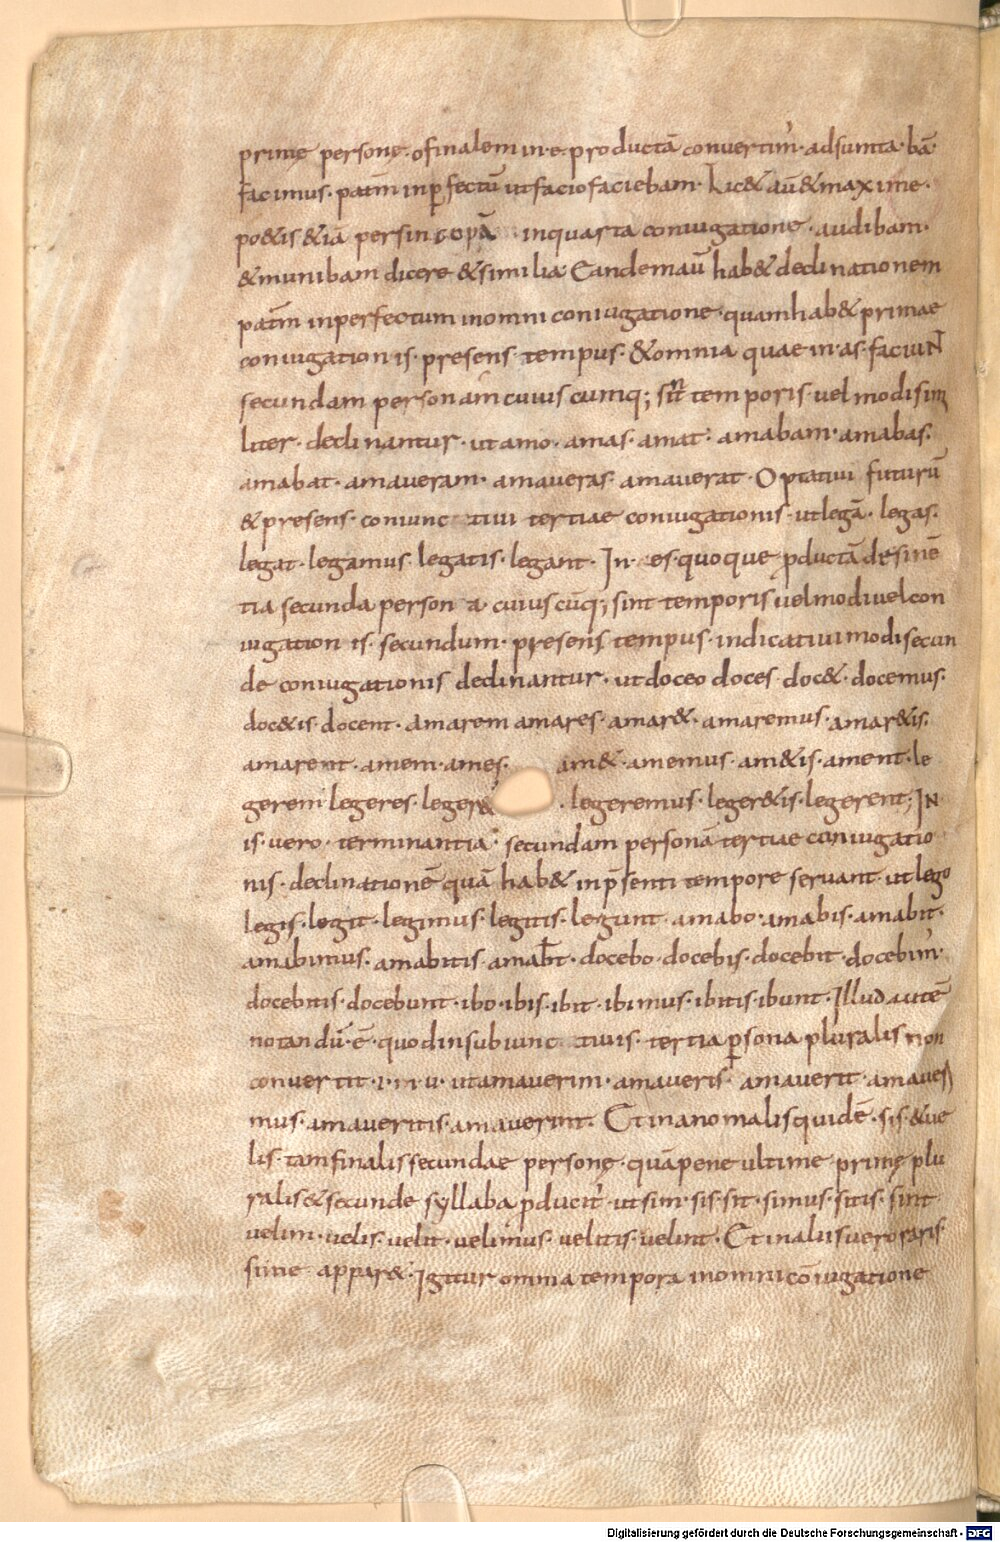 primę personę · o finalem in · e · productā convertim̕ · adsumta · bā ·
facimus · pat̄m inp̱fectū ut facio faciebam · Lic& aū & maxime ·
po&is & iā persincopā · in quarta coniugatione · audibam ·
& munibam dicere & similia · Eandem aū hab& declinationem
pat̄m inperfectum in omni coniugatione · quam hab& primae
coniugationis · presens · tempus · & omnia quae in · as · faciuNT
secundam personam cuiuscumq; sint temporis · vel modi simi
liter · declinantur · ut amo · amas · amat · amabam · amabas ·
amabat · amaveram · amaveras · amaverat · Optativi futurū
& presens · coniunctivi tertiae coniugationis · ut legā · legas ·
legat · legamus · legatis · legant · In · es · quoque p̱ductā desinē
tia secunda persona · cuiuscūq; sint temporis vel modi vel con
iugationis · secundum · presens tempus · indicativi modi secun
de coniugationis declinantur · ut doceo doces · doc& · docemus ·
doc&is · docent · amarem amares · amar& · amaremus · amar&is ·
amarent · amem · ames · am& · amemus · am&is · ament · le
gerem legeres · leger& · legeremus · leger&is · legerent; IN
is · vero · terminantia · secundam personā tertiae coniugatio
nis · declinationē quā hab& in p̄senti tempore servant · ut lego
legis · legit · legimus · legitis · legunt · amabo · amabis · amabit ·
amabimus · amabitis · amab̄t · docebo · docebis · docebit · docebim̕ ·
docebitis · docebunt · ibo · ibis · ibit · ibimus · ibitis · ibunt · Illud autē
notandū · ē · quod in subiunctivis · tertia p̱sona pluralis non
convertit · i · in · u · ut amaverim · amaveris · amaverit · amaveri
mus · amaveritis · amaverint · Et in anomalis quidē · sis · & ve
lis · tam finalis secundae personę · quā pene ultime primę plu
ralis & secunde syllaba p̱ducit̕ · ut sim · sis · sit · simus · sitis · sint
velim · velis · velit · velimus · velitis · velint · Et in aliis vero raris
sime appar& · Igitur omnia tempora in omni cōiugatione
Digitalisierung gefördert durch die Deutsche Forschungsgemeinschaft - DFG